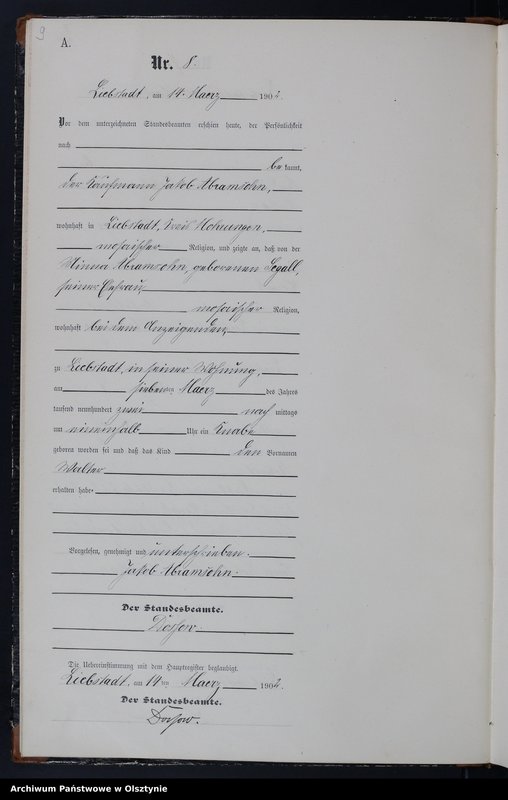 9
A.
Nr. 8.
Liebstadt, am 14. Maerz 1902.
Vor dem unterzeichneten Standesbeamten erschien heute, der Persönlichkeit
nach
be kannt,
der Kaufmann Jakob Abramsohn,
wohnhaft in Liebstadt, Kreis Mohrungen,
mosaischer Religion, und zeigte an, daß von der
Minna Abramsohn, geborenen Segall,
seiner Ehefrau,
mosaischer Religion,
wohnhaft bei dem Anzeigenden,
zu Liebstadt, in seiner Wohnung,
am siebenten Maerz des Jahres
tausend neunhundert zwei nach mittags
um ein Knabe
geboren worden sei und daß das Kind den Vornamen
Walter
erhalten habe.
Vorgelesen, genehmigt und unterschrieben.
Jakob Abramsohn.
Der Standesbeamte.
Die Uebereinstimmung mit dem Hauptregister beglaubigt.
Liebstadt, am 14 ten Maerz 1902.
Der Standesbeamte.
Archiwum Państwowe w Olsztynie